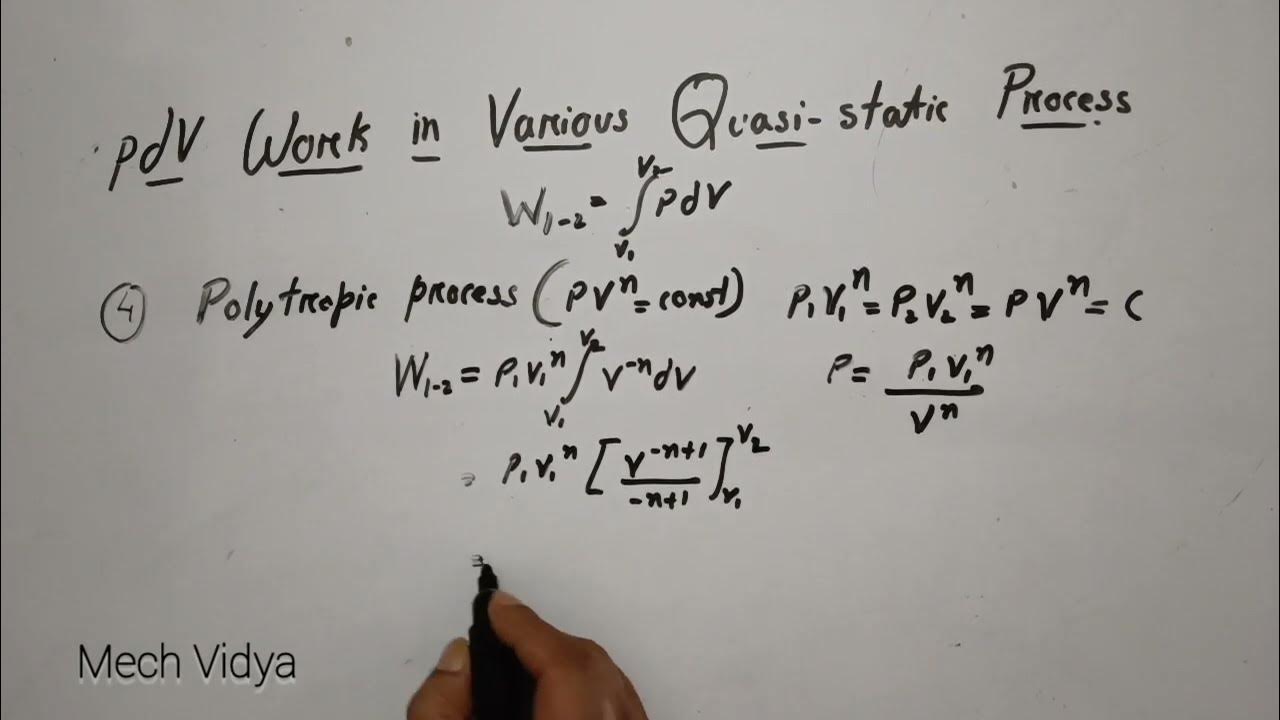 pdV Work in Various Quasi-static Process
W₁₋₂ = ∫_{V₁}^{V₂} PdV
④ Polytropic process (PVⁿ = const) P₁V₁ⁿ = P₂V₂ⁿ = PVⁿ = C
W₁₋₂ = P₁V₁ⁿ ∫_{V₁}^{V₂} V⁻ⁿdV P = P₁V₁ⁿ / Vⁿ
= P₁V₁ⁿ [V⁻ⁿ⁺¹ / -n+1]_{V₁}^{V₂}
=
Mech Vidya